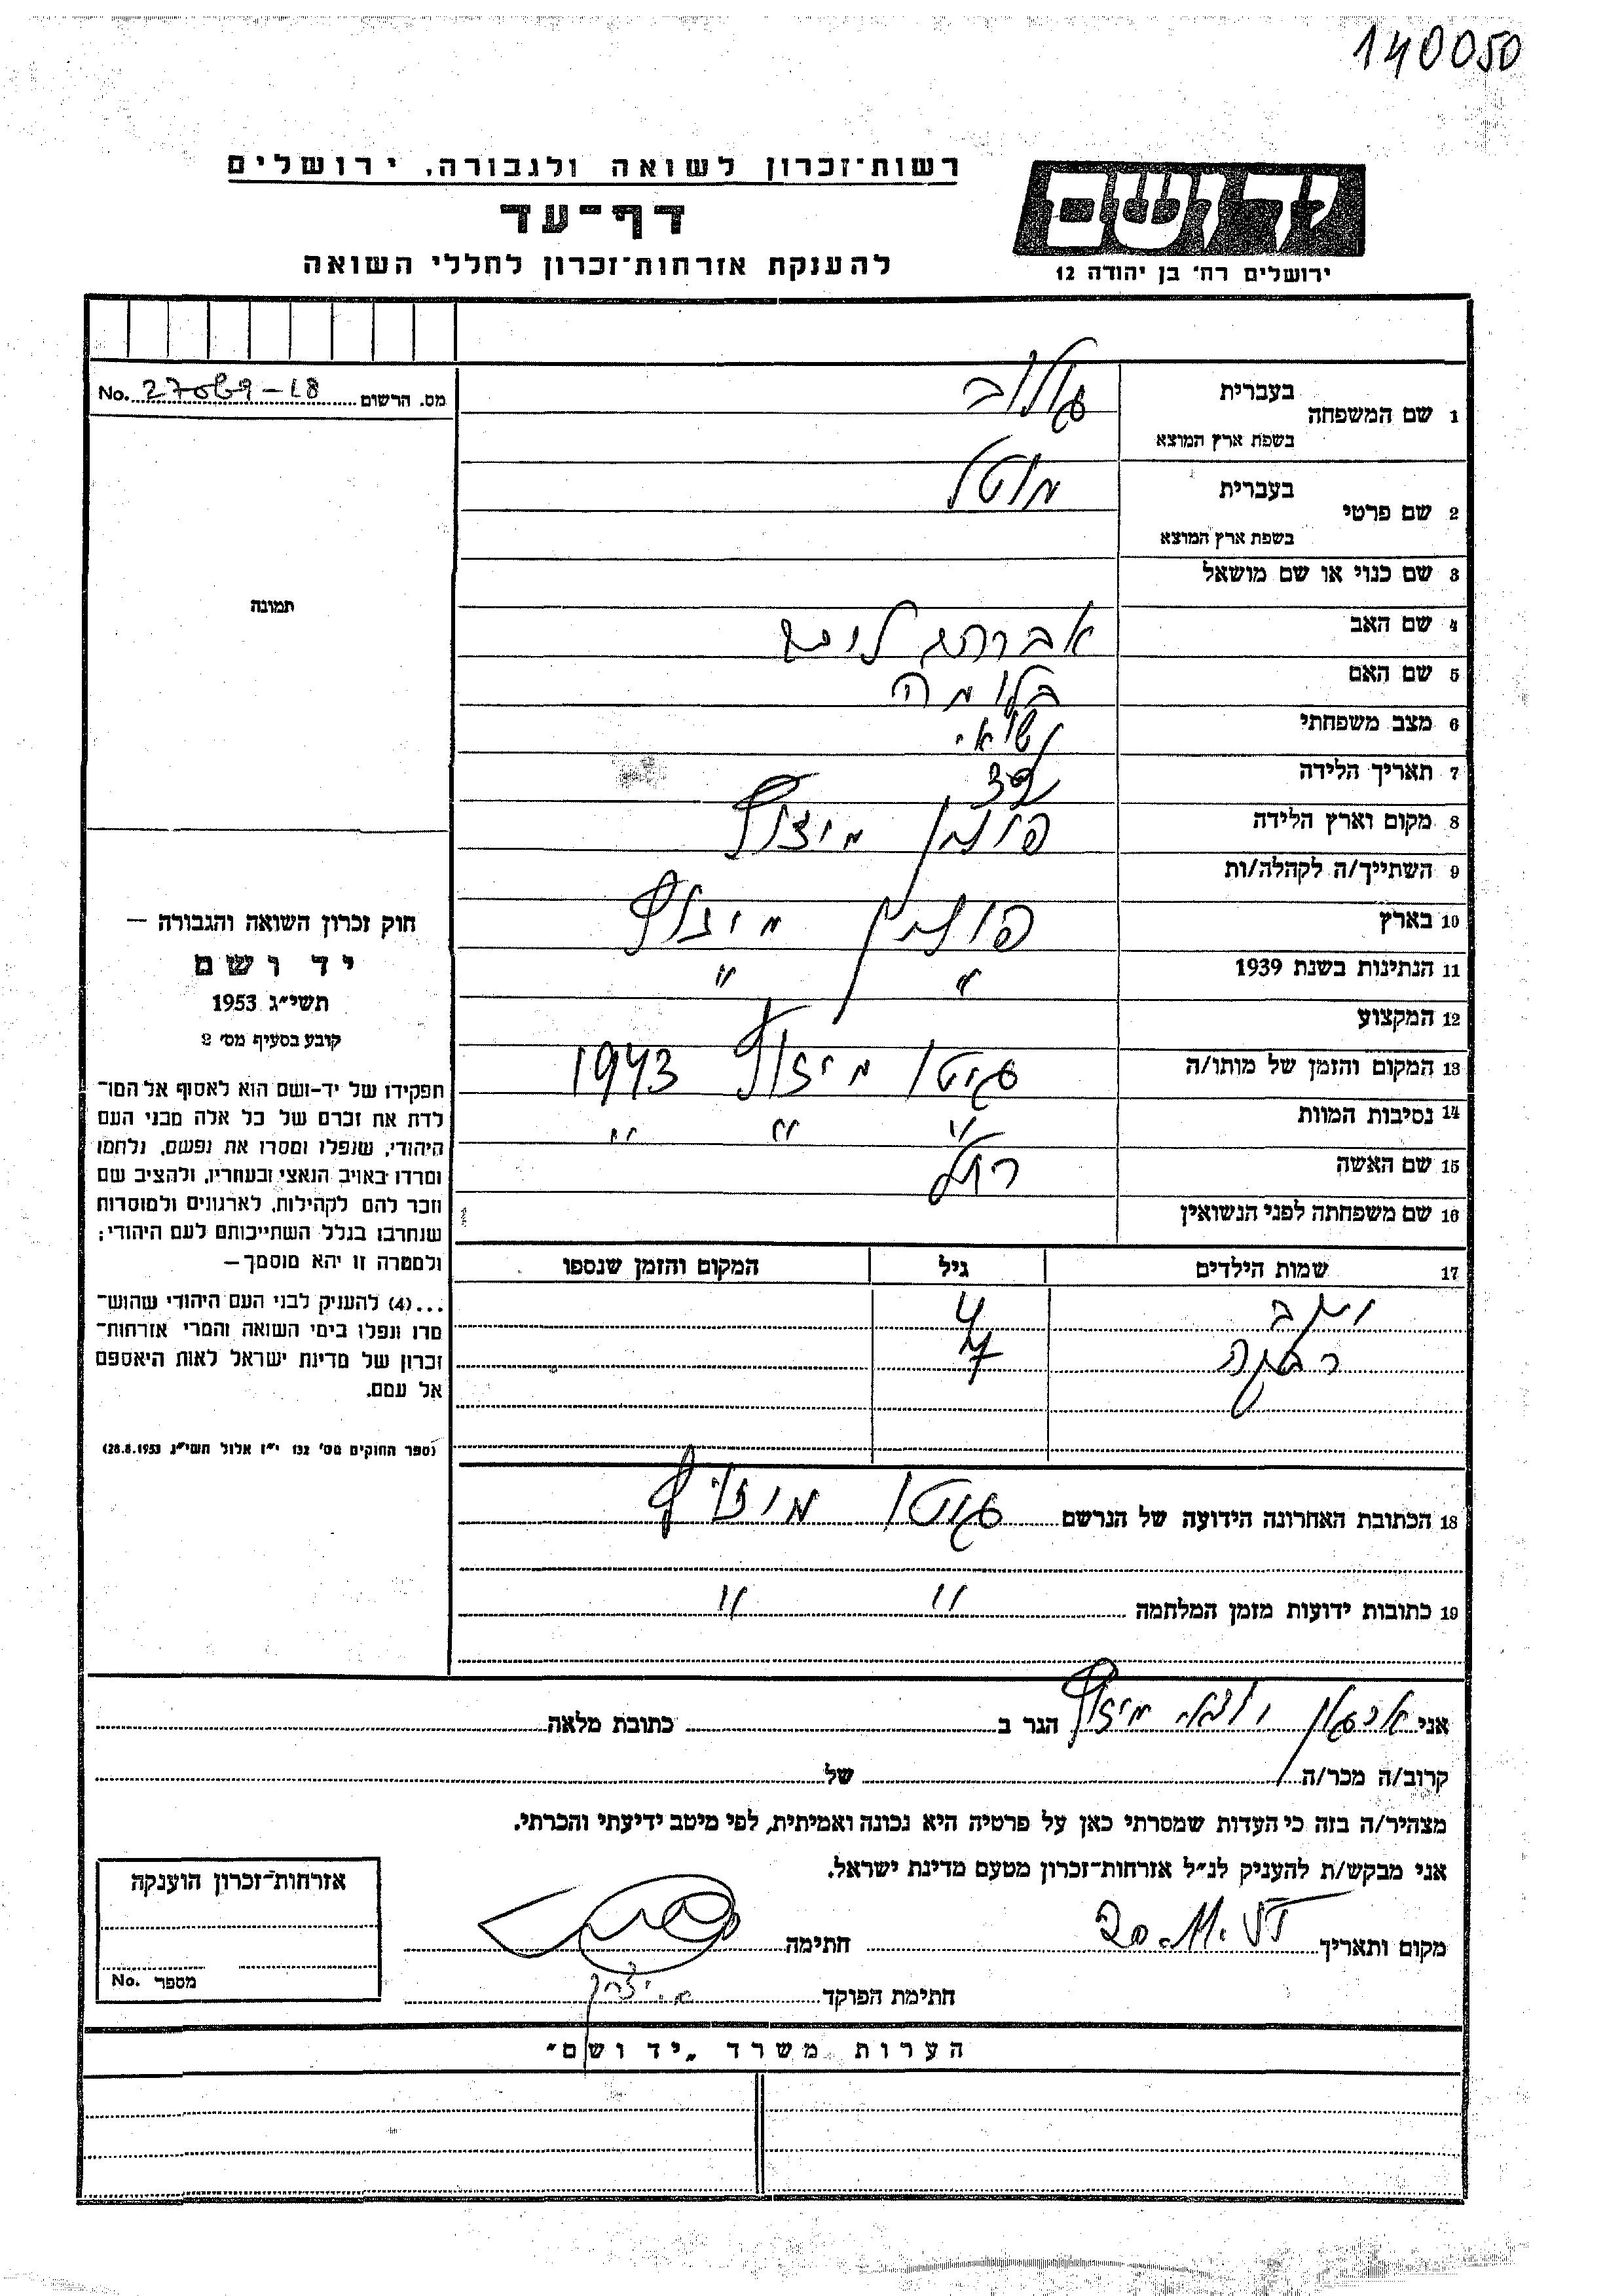 140050
רשות־זכרון לשואה ולגבורה, ירושלים
דף־עד
להענקת אזרחות־זכרון לחללי השואה
ידושם
ירושלים רח׳ בן יהודה 12
מס. הרשום No. 27089-18
1 שם המשפחה בעברית
בשפת ארץ המוצא
2 שם פרטי בעברית מוטל
בשפת ארץ המוצא
3 שם כנוי או שם מושאל
4 שם האב אברהם ליב
5 שם האם בלומה
6 מצב משפחתי נשואי
7 תאריך הלידה 32
8 מקום וארץ הלידה פולין
9 השתייך/ה לקהלה/ות
10 בארץ פולין
11 הנתינות בשנת 1939 " "
12 המקצוע
13 המקום והזמן של מותו/ה גיטו 1943
14 נסיבות המוות " " "
15 שם האשה רחל
16 שם משפחתה לפני הנשואין
17 שמות הילדים גיל המקום והזמן שנספו
4
רבקה 7
18 הכתובת האחרונה הידועה של הנרשם גיטו
19 כתובות ידועות מזמן המלחמה " "
תמונה
חוק זכרון השואה והגבורה —
יד ושם
תשי״ג 1953
קובע בסעיף מס׳ 2
תפקידו של יד-ושם הוא לאסוף אל המו־
לדת את זכרם של כל אלה מבני העם
היהודי, שנפלו ומסרו את נפשם, נלחמו
ומרדו באויב הנאצי ובעוזריו, ולהציב שם
וזכר להם לקהילות, לארגונים ולמוסדות
שנחרבו בגלל השתייכותם לעם היהודי;
ולמטרה זו יהא מוסמך —
...(4) להעניק לבני העם היהודי שהוש־
מדו ונפלו בימי השואה והמרי אזרחות־
זכרון של מדינת ישראל לאות היאספם
אל עמם.
(ספר החוקים מס׳ 132 י״ז אלול תשי״ג 28.8.1953)
אני הגר ב כתובת מלאה
קרוב/ה מכר/ה של
מצהיר/ה בזה כי העדות שמסרתי כאן על פרטיה היא נכונה ואמיתית, לפי מיטב ידיעתי והכרתי.
אני מבקש/ת להעניק לנ״ל אזרחות־זכרון מטעם מדינת ישראל.
מקום ותאריך 20.11.55 חתימה
חתימת הפוקד
אזרחות־זכרון הוענקה
מספר No.
הערות משרד „יד ושם״